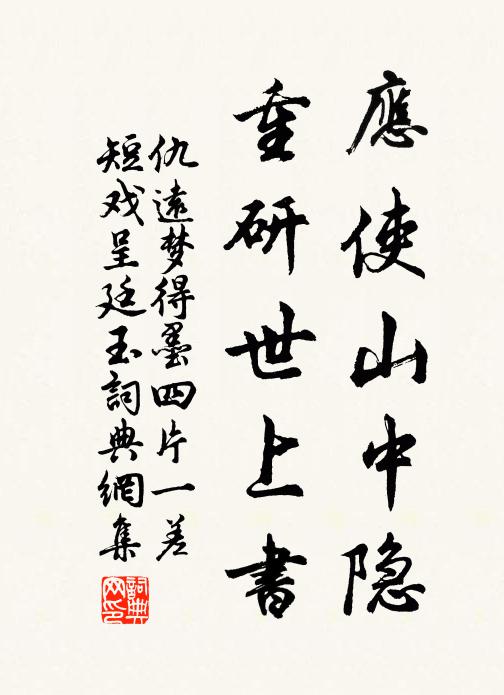 應使山中隐
重研世上書
仇遠梦得墨四片一差
短戏呈廷玉詞典網集
詞典網印